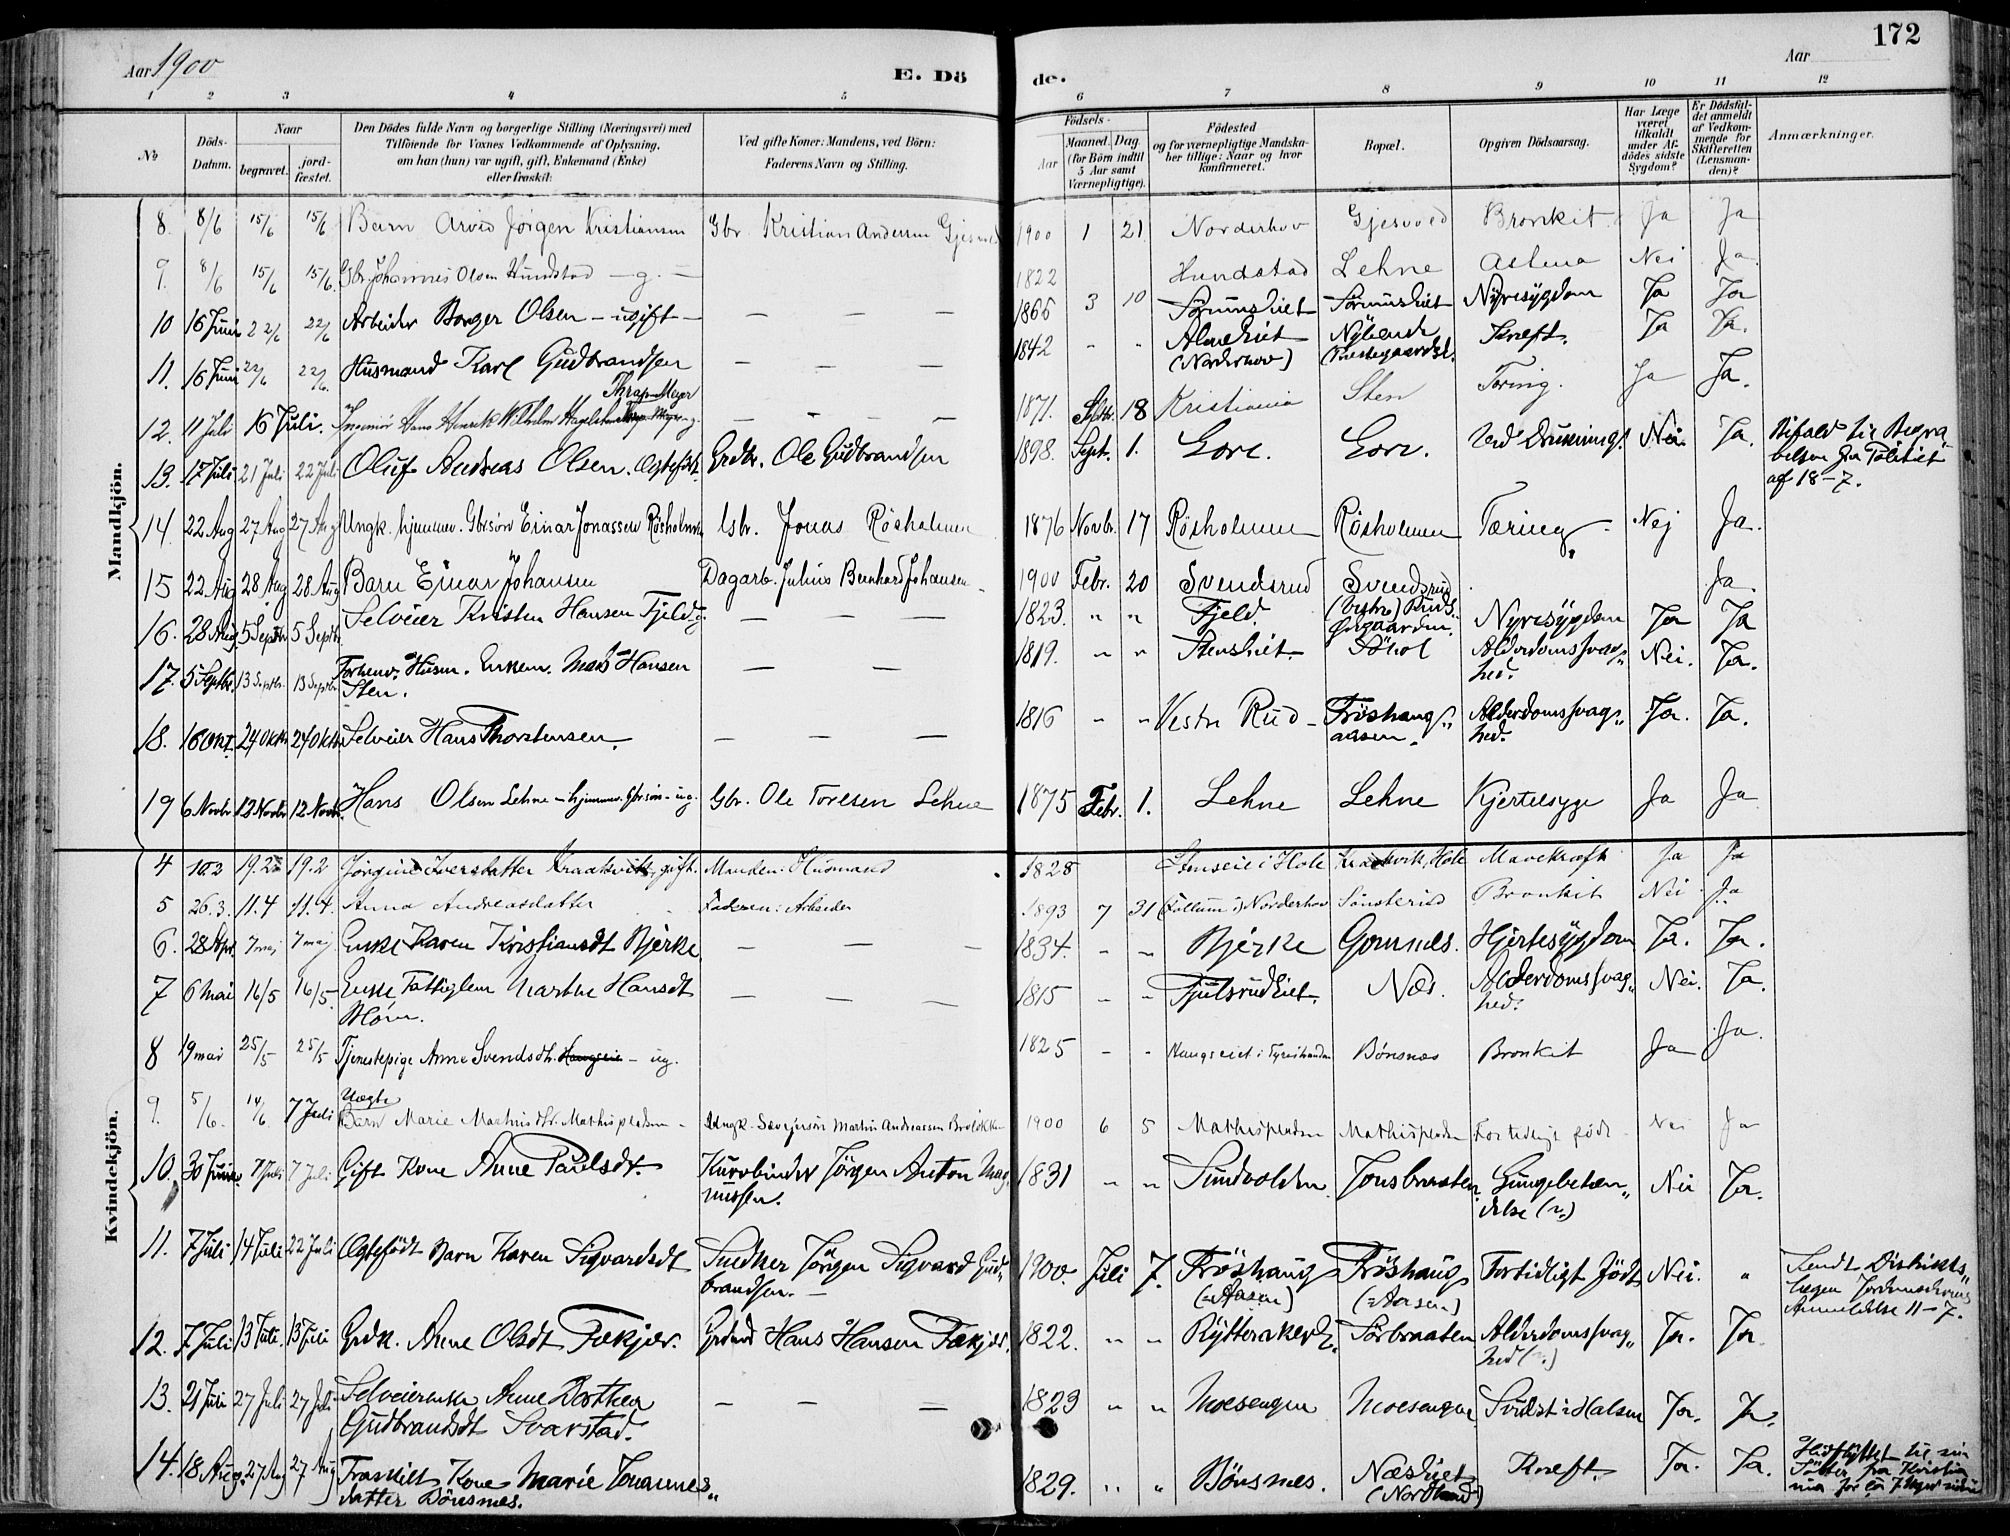 172
Aar 1900
E. Döde.
Aar
1 2 3 4 5 6 7 8 9 10 11 12
No
Döds-Datum.
Naar
begravet.
jordfæstet.
Den Dödes fulde Navn og borgerlige Stilling (Næringsvei) med
Tilföiende for Voxnes Vedkommende af Oplysning,
om han (hun) var ugift, gift, Enkemand (Enke)
eller fraskilt.
Ved gifte Koner: Mandens, ved Börn:
Faderens Navn og Stilling.
Födsels-
Aar
Maaned. Dag
(for Börn indtil 5 Aar samt Værnepligtige).
Födested
og for værnepligtige Mandskaber tillige: Naar og hvor konfirmeret.
Bopæl.
Opgiven Dödsaarsag.
Har Læge været tilkaldt under Afdödes sidste Sygdom?
Er Dödsfaldet anmeldt af Vedkommende for Skifteretten (Lensmanden)?
Anmærkninger.
Mandkjön.
8. 8/6 15/6 15/6 Barn Arvid Jörgen Kristiansen Gbr Kristian Andersen 1900 1 21 Norderhov Gjesvold Bronkit Ja Ja
9. 8/6 15/6 15/6 Gbr. Johannes Olsen Hundstad - g. - 1822 Hundstad Lehne Astma Nei Ja.
10 16 Juni 22/6 22/6 Arbeider Borger Olsen - ugift - 1865 3 10 Sörumseiet Sörumseiet Nyresygdom Ja Ja
11. 16 Juni 22/6 22/6 Husmand Karl Gudbrandsen 1842 " " Almeeiet (Norderhov) Nylænde Kræft. Ja Ja.
Thrap-Meyer
12. 11 Juli 16 Juli. Ingeniör Hans Henrik Wilhelm g. 1871. Septbr. 18 Kristiania Sten Tæring. Ja Ja.
13. 17 Juli 21 Juli 22 Juli Oluf Andreas Olsen. Ægtefödt. Grdbr. Ole Gudbrandsen 1898. Sept. 1. Gore. Gore. Ved Drukning. Nei Ja. Bifald til Begra
belsen fra Politiet
af 18-7.
14. 22 Aug 27 Aug 27 Aug Ungk. hjemmev. Gbrsön Einar Jonassen Rösholmen Gbr. Jonas Rösholmen 1876 Novbr. 17 Rösholmen Rösholmen Tæring Nej Ja.
15 22 Aug 28 Aug 28 Aug Barn Einar Johansen Dagarb. Julius Bernhard Johansen 1900 Febr. 20 Svendsrud Svendsrud Ja
16. 28 Aug 5 Septbr 5 Septbr Selveier Kristen Hansen Fjeld. g. 1823. " " Fjeld. (Vestre) Ruds Nyresygdom Ja Ja
17. 5 Septbr. 13 Septbr. 13 Septbr Forhenv. Husm. Enkem. Mads Hansen
Sten. 1819. " " Stenseiet. Söhol Alderdomssvag
hed. Nei. Ja.
18. 16 Okt 24 Oktb 24 Oktb Selveier Hans Thorstensen. 1816 " " Vestre Rud Fröshaugs
aasen. Alderdomssvag
hed. Ja. Ja.
19 6 Novbr 12 Novbr 12 Novb. Hans Olsen Lehne - hjemmev. Gbrsön - ug. Gbr. Ole Toresen Lehne 1875 Febr. 1. Lehne Lehne Kjertelsyge Ja Ja
Kvindekjön.
4 10.2 19.2 19.2 Jörgine Iversdatter Kraakvik, gift. Manden: Husmand 1828 Stenseie i Hole Kraakvik, Hole Mavekræft Ja Ja
5 26.3. 11.4 11.4. Anna Andreasdatter Faderen: Arbeider 1893 7 31 (Follum i) Norderhov Sönsterud Bronkit Nei Ja
6. 28 Apr. 7 maj 7 maj Enke Karen Kristiansdt Bjerke 1834. " " Bjerke Gomnes. Hjertesygdom Ja. Ja.
7 6 Mai 16/5 16/5. Enke Fattiglem Marthe Hansdt 1815 " " Fjulsrudeiet. Næs. Alderdomssvag
hed. Nei. Ja.
8 19 mai 25/5 25/5 Tjenestepige Anne Svendsdt. Haugseie - ug. 1825 - - Haugseiet i Tyristranden Bönsnæs Bronkit Ja Ja.
Uægte
9. 5/6. 14/6 7 Juli Barn Marie Martinsdtr. Mathispladsen - Ungk. Martin Andreassen 1900 6 5 Mathispladsen Mathispladsen For tidligt födt Nei Ja
10. 30 Juni 7 Juli 7 Juli Gift Kone Anne Paulsdt. Kurvbinder Jörgen Anton Mag
nussen. 1831 " " Sundvolden Jonsbraaten Lungebetæn
delse (?) Nei Ja.
11. 7 Juli 14 Juli 22 Juli Ægtefödt Barn Karen Sigvardsdt Snedker Jörgen Sigvard Gud
brandsen. 1900. Juli 7. Fröshaug
(=Aasen) Fröshaug
(=Aasen) Fortidligt födt Nei. " Sendt Distrikts
lægen Jordmoderens
Anmeldelse 11-7.
12. 7 Juli 13 Juli 13 Juli Grdk. Anne Olsdt Fækjær. Grdmd Hans Hansen Fækjær. 1822. " " Rytterager Sörbraaten Alderdomssvag
hed (?) Ja. Ja.
13. 21 Juli 27 Juli 27 Juli Selveierenke Anne Dorthea
Gudbrandsdt Svarstad. 1823 " " Moesengen Moesengen Svulst i Halsen Ja. Ja.
14. 18 Aug. 27 Aug 27 Aug Fraskilt Kone Marie Johannes
datter Bönsnes. 1829. " " Bönsnes. Næseiet
(Nordland) Kræft. Ja. Ja. Hidflyttet til sin
Datter fra Kristia
nia for ca 7 Uger siden